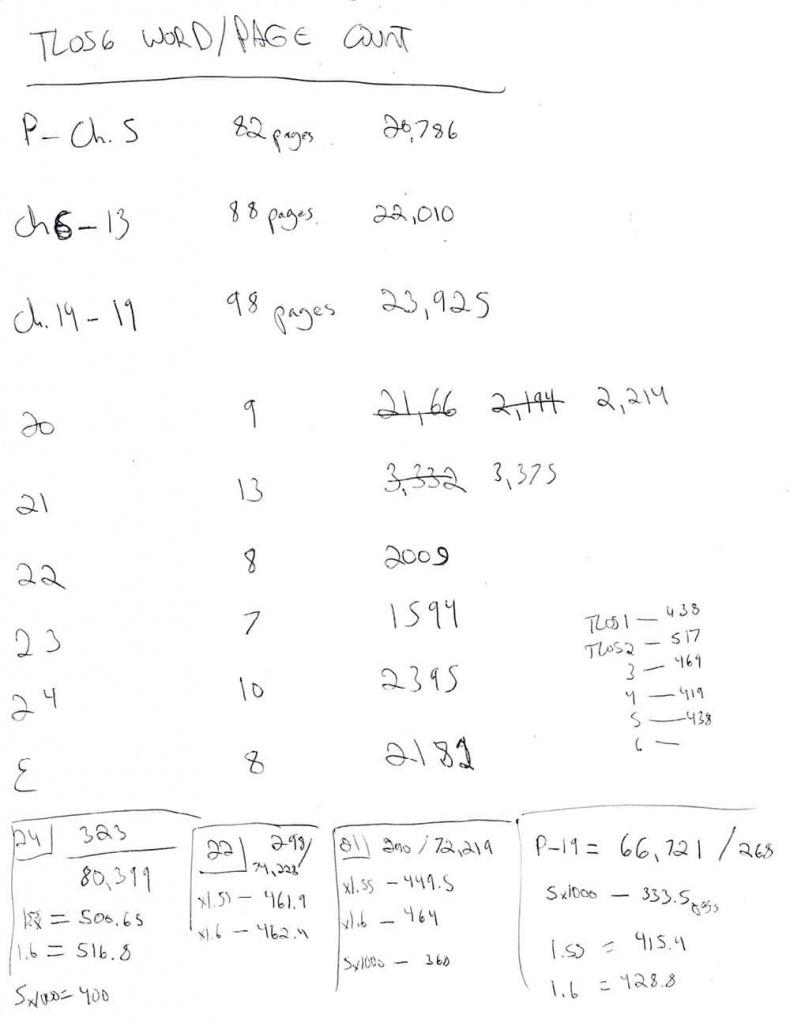 TLOS6 WORD/PAGE COUNT
P- Ch. 5 82 pages. 20,786
ch 6-13 88 pages. 22,010
ch. 14-19 98 pages 23,925
20 9 21,66 2,194 2,214
21 13 3,332 3,375
22 8 2009
23 7 1594
24 10 2395
E 8 2182
TLOS1 — 438
TLOS2 — 517
3 — 469
4 — 419
5 — 438
6 —
24 323
80,399
1.55 = 500.65
1.6 = 516.8
5x1000= 400
22 298/
74,228
x1.55 - 461.9
x1.6 - 462.4
21 290 / 72,219
x1.55 - 449.5
x1.6 - 464
5x1000 - 360
P-19 = 66,721 / 268
5x1000 - 333.5 pgs
1.55 = 415.4
1.6 = 428.8